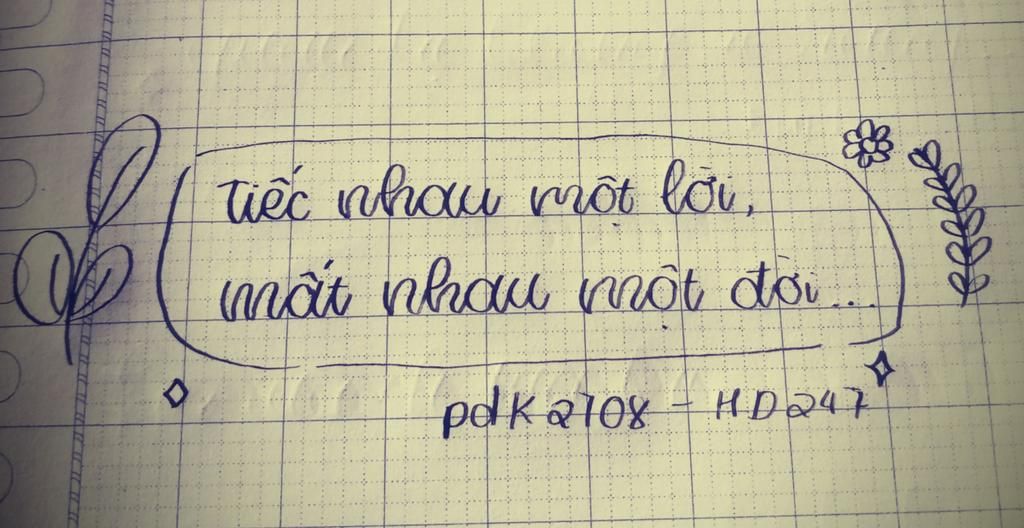 Tiếc nhau một lời,
mất nhau một đời...
pdk2708 - HD247